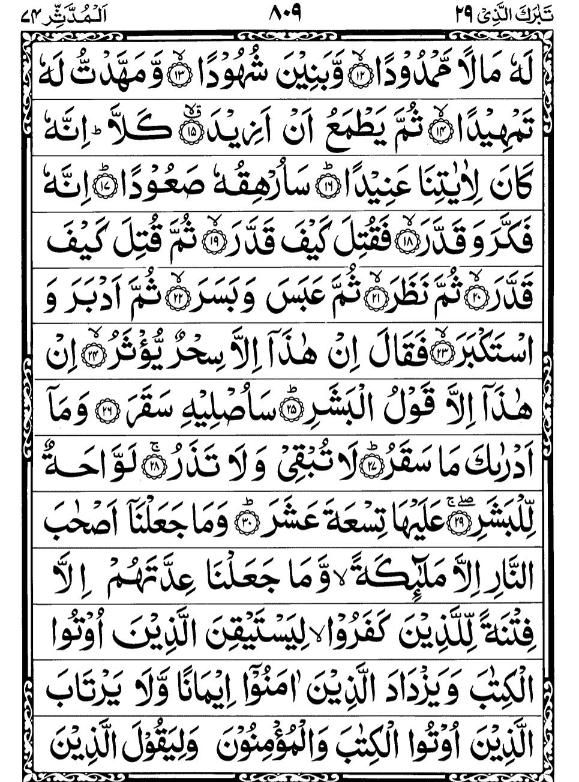 تَبٰرَكَ الَّذِیْ ۲۹ ۸۰۹ اَلْمُدَّثِّر ۷۴
لَهٗ مَالًا مَّمْدُوْدًا ۙ﴿۱۲﴾ وَّ بَنِیْنَ شُهُوْدًا ۙ﴿۱۳﴾ وَّ مَهَّدْتُّ لَهٗ
تَمْهِیْدًا ۙ﴿۱۴﴾ ثُمَّ یَطْمَعُ اَنْ اَزِیْدَ ۙ﴿۱۵﴾ كَلَّا ؕ اِنَّهٗ
كَانَ لِاٰیٰتِنَا عَنِیْدًا ؕ﴿۱۶﴾ سَاُرْهِقُهٗ صَعُوْدًا ؕ﴿۱۷﴾ اِنَّهٗ
فَكَّرَ وَ قَدَّرَ ۙ﴿۱۸﴾ فَقُتِلَ كَیْفَ قَدَّرَ ۙ﴿۱۹﴾ ثُمَّ قُتِلَ كَیْفَ
قَدَّرَ ۙ﴿۲۰﴾ ثُمَّ نَظَرَ ۙ﴿۲۱﴾ ثُمَّ عَبَسَ وَ بَسَرَ ۙ﴿۲۲﴾ ثُمَّ اَدْبَرَ وَ
اسْتَكْبَرَ ۙ﴿۲۳﴾ فَقَالَ اِنْ هٰذَاۤ اِلَّا سِحْرٌ یُّؤْثَرُ ۙ﴿۲۴﴾ اِنْ
هٰذَاۤ اِلَّا قَوْلُ الْبَشَرِ ؕ﴿۲۵﴾ سَاُصْلِیْهِ سَقَرَ ﴿۲۶﴾ وَ مَاۤ
اَدْرٰىكَ مَا سَقَرُ ؕ﴿۲۷﴾ لَا تُبْقِیْ وَ لَا تَذَرُ ۚ﴿۲۸﴾ لَوَّاحَةٌ
لِّلْبَشَرِ ۚۖ﴿۲۹﴾ عَلَیْهَا تِسْعَةَ عَشَرَ ؕ﴿۳۰﴾ وَ مَا جَعَلْنَاۤ اَصْحٰبَ
النَّارِ اِلَّا مَلٰٓىِٕكَةً ۪ وَّ مَا جَعَلْنَا عِدَّتَهُمْ اِلَّا
فِتْنَةً لِّلَّذِیْنَ كَفَرُوْا ۙ لِیَسْتَیْقِنَ الَّذِیْنَ اُوْتُوا
الْكِتٰبَ وَ یَزْدَادَ الَّذِیْنَ اٰمَنُوْۤا اِیْمَانًا وَّ لَا یَرْتَابَ
الَّذِیْنَ اُوْتُوا الْكِتٰبَ وَ الْمُؤْمِنُوْنَ وَ لِیَقُوْلَ الَّذِیْنَ